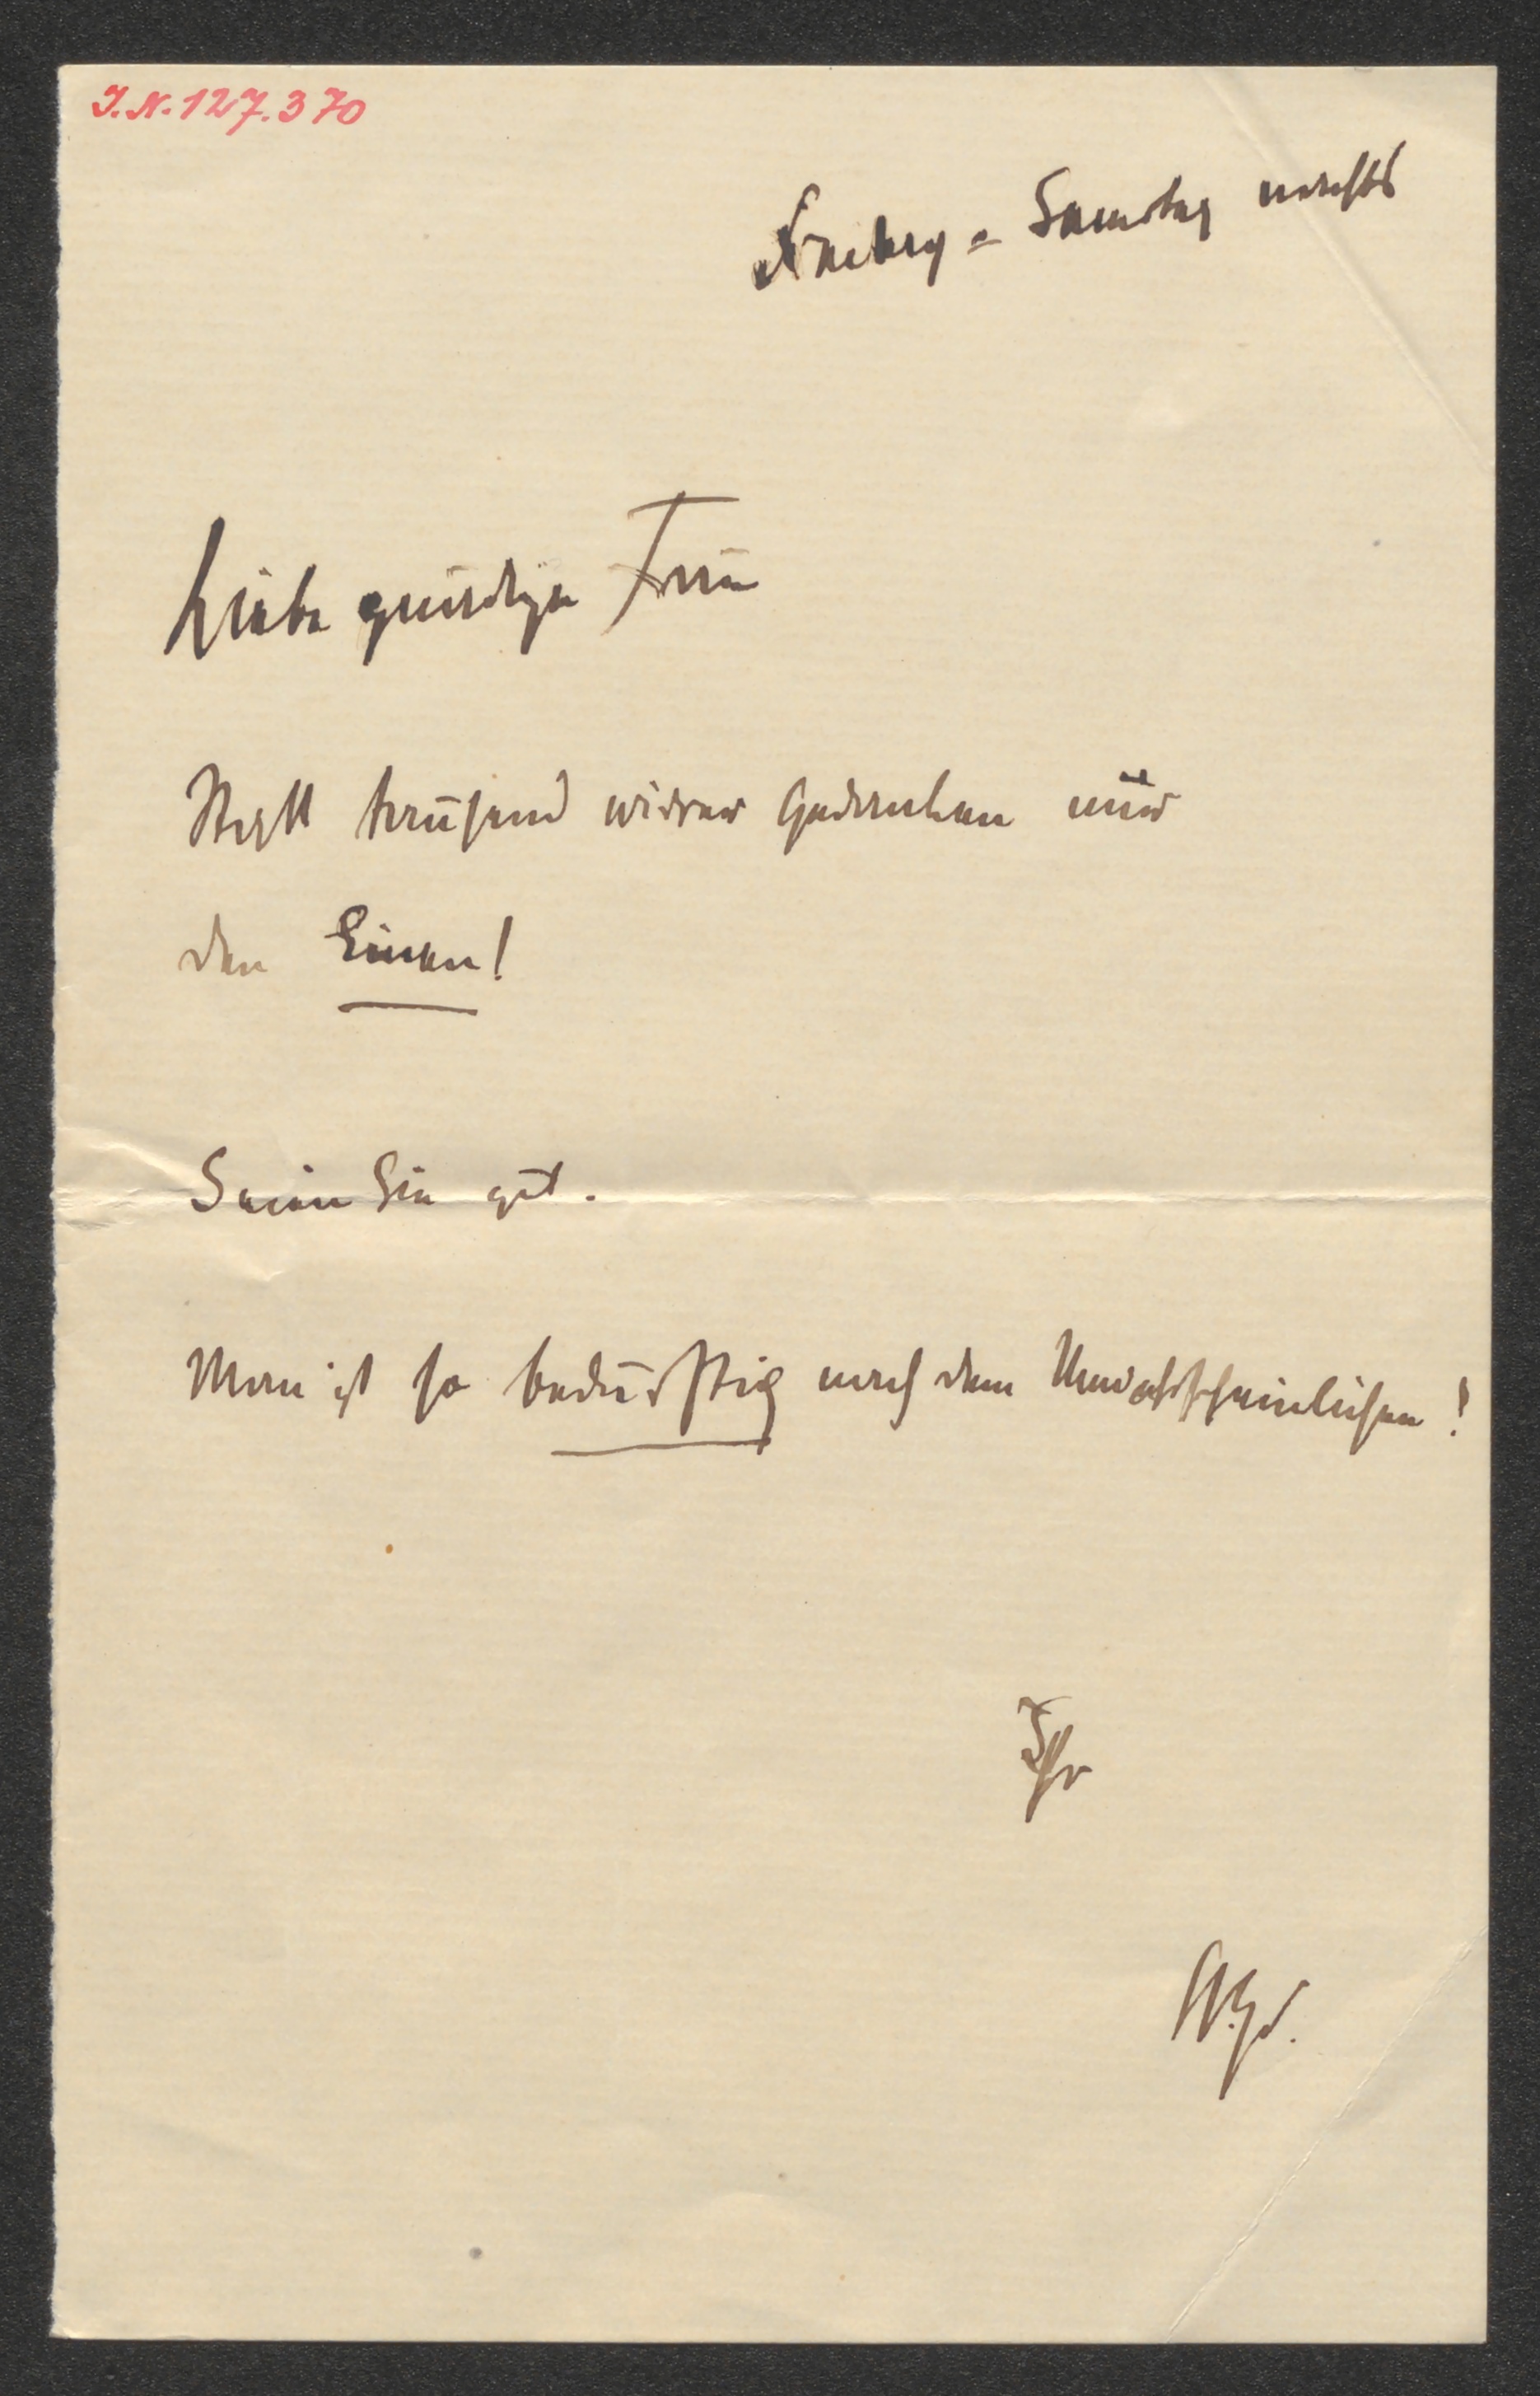 I.N. 127.370
Freitag = Samstag nachts
Liebe gnädige Frau
Statt tausend wirrer Gedanken nur
den Einen!
Seien Sie gut.
Man ist so bedürftig nach dem Unwahrscheinlichen!
Ihr